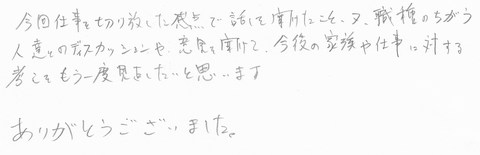 今回仕事を切り放した視点で話しを聞けたこと、又、職種のちがう
人達とのディスカッションや、意見を聞けて、今後の家族や仕事に対する
考えをもう一度見直したいと思います
ありがとうございました。